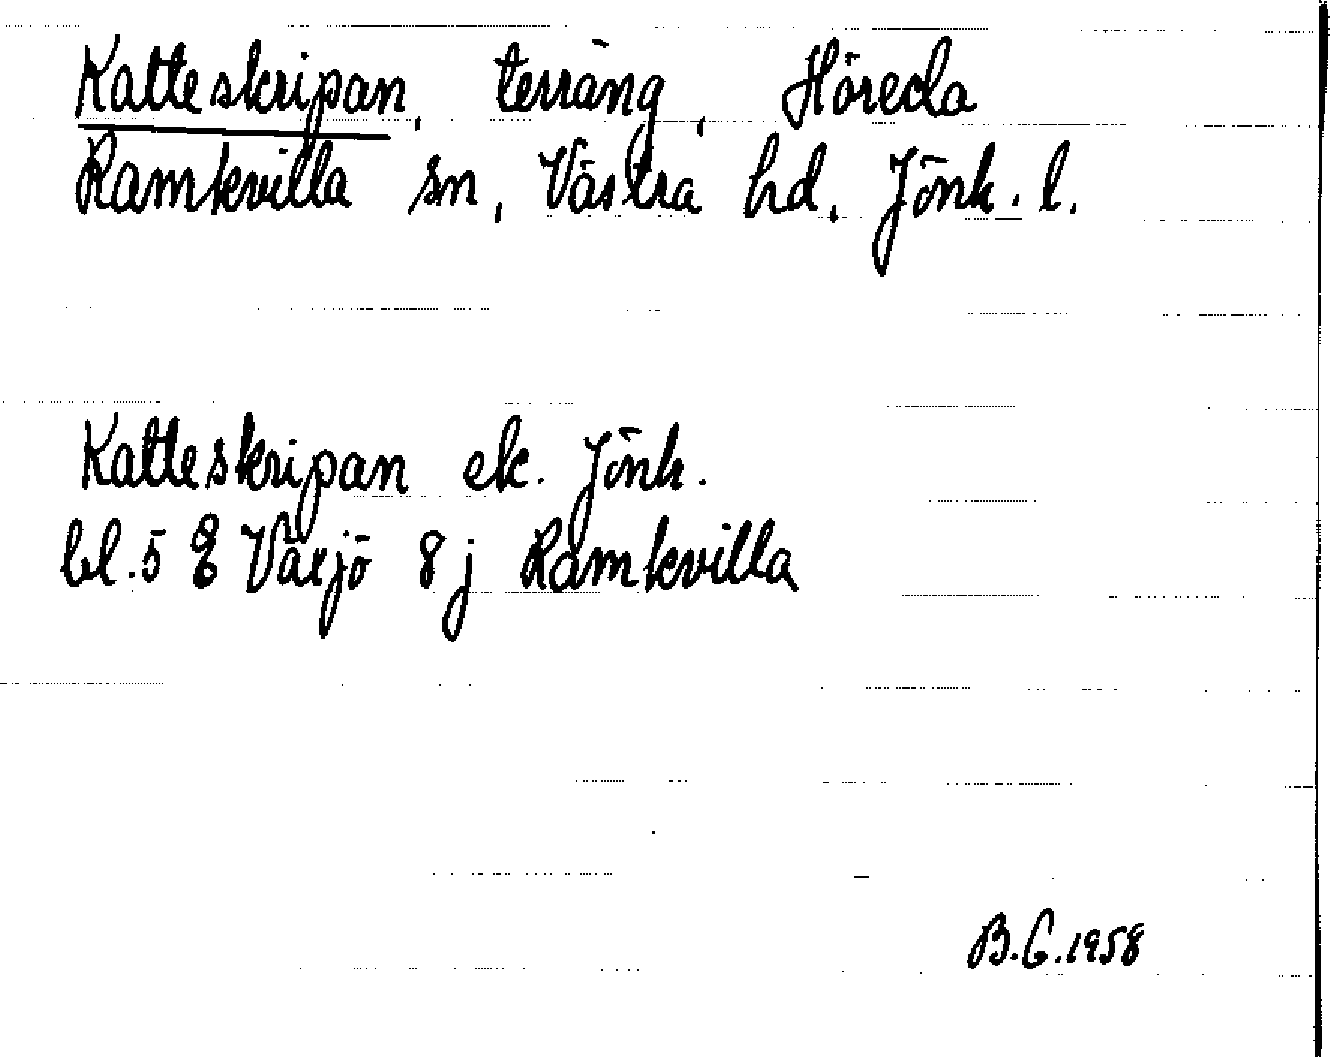 Katteskripan, terräng, Höreda
Ramkvilla sn, Västra hd, Jönk. l.
Katteskripan ek. Jönk.
bl. 5 Växjö 8 j Ramkvilla
B.G. 1958